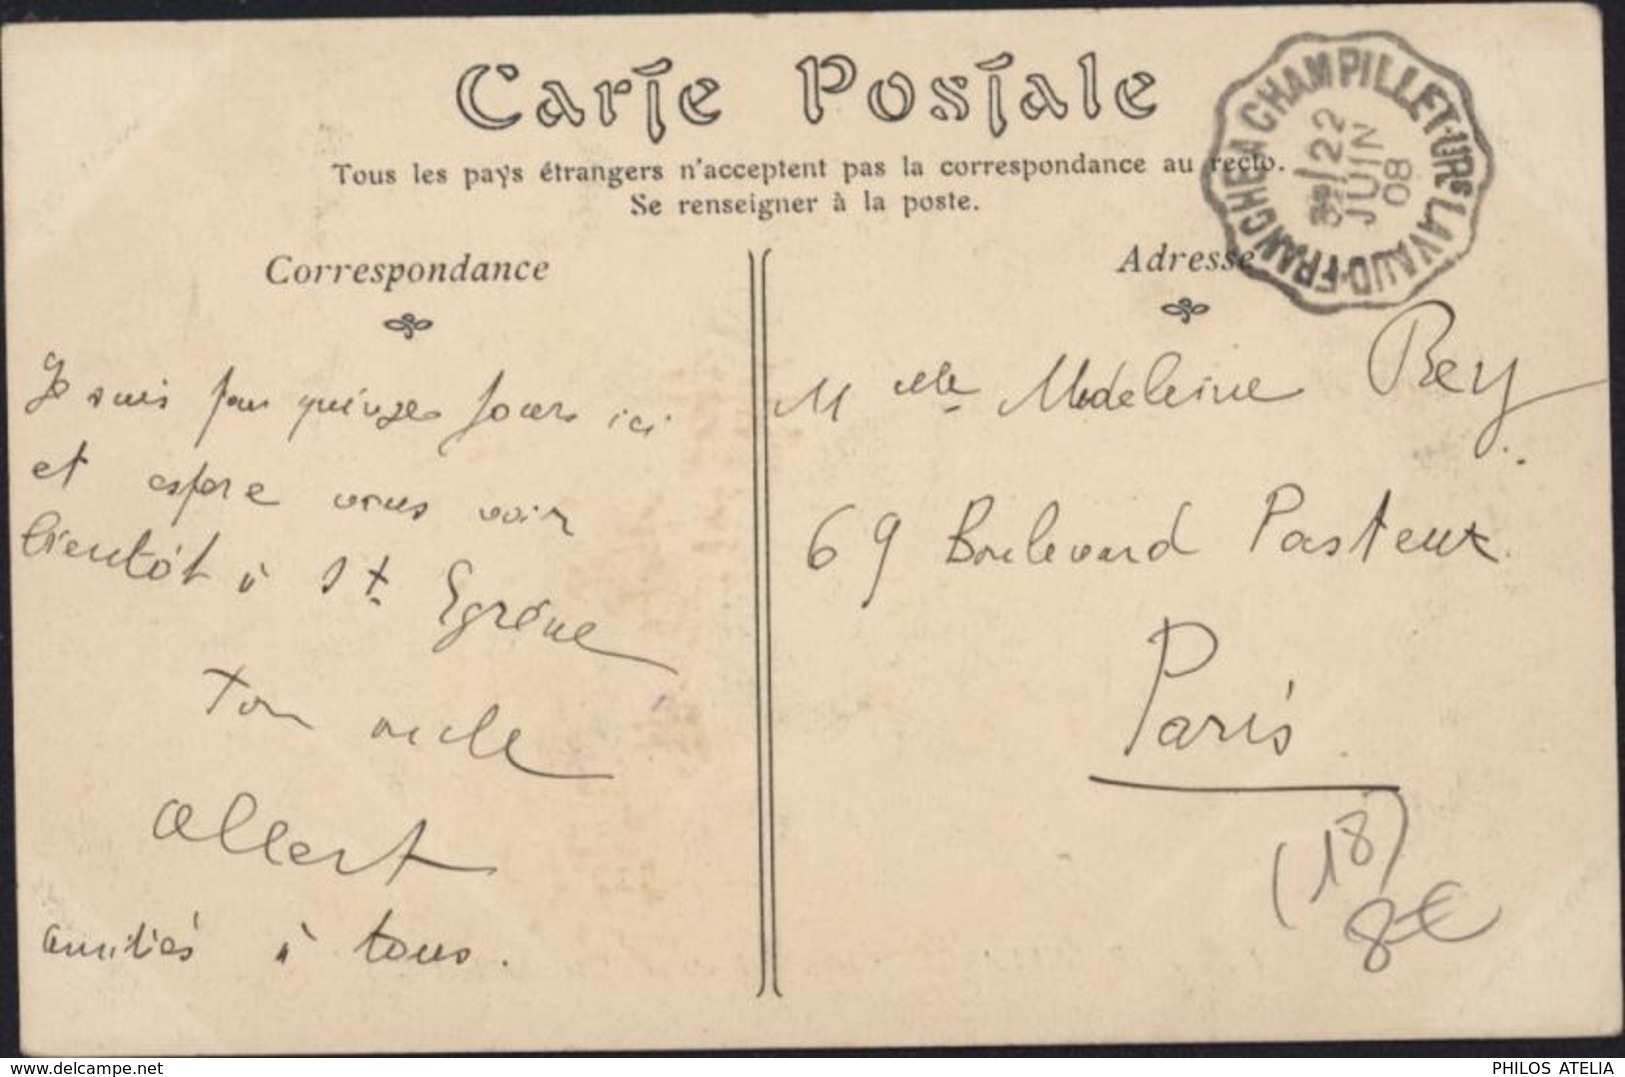 Carte Postale
Tous les pays étrangers n'acceptent pas la correspondance au recto.
Se renseigner à la poste.
Correspondance
Adresse
LAVAUD-FRANCHE A CHAMPILLET-URS
22
JUIN
08
Je suis pour quinze jours ici
et espère vous voir
bientôt à St Egrève
Ton oncle
Albert
amitiés à tous.
Melle Madeleine Rey
69 Boulevard Pasteur
Paris
(18)
8€
delcampe.net
PHILOS ATELIA